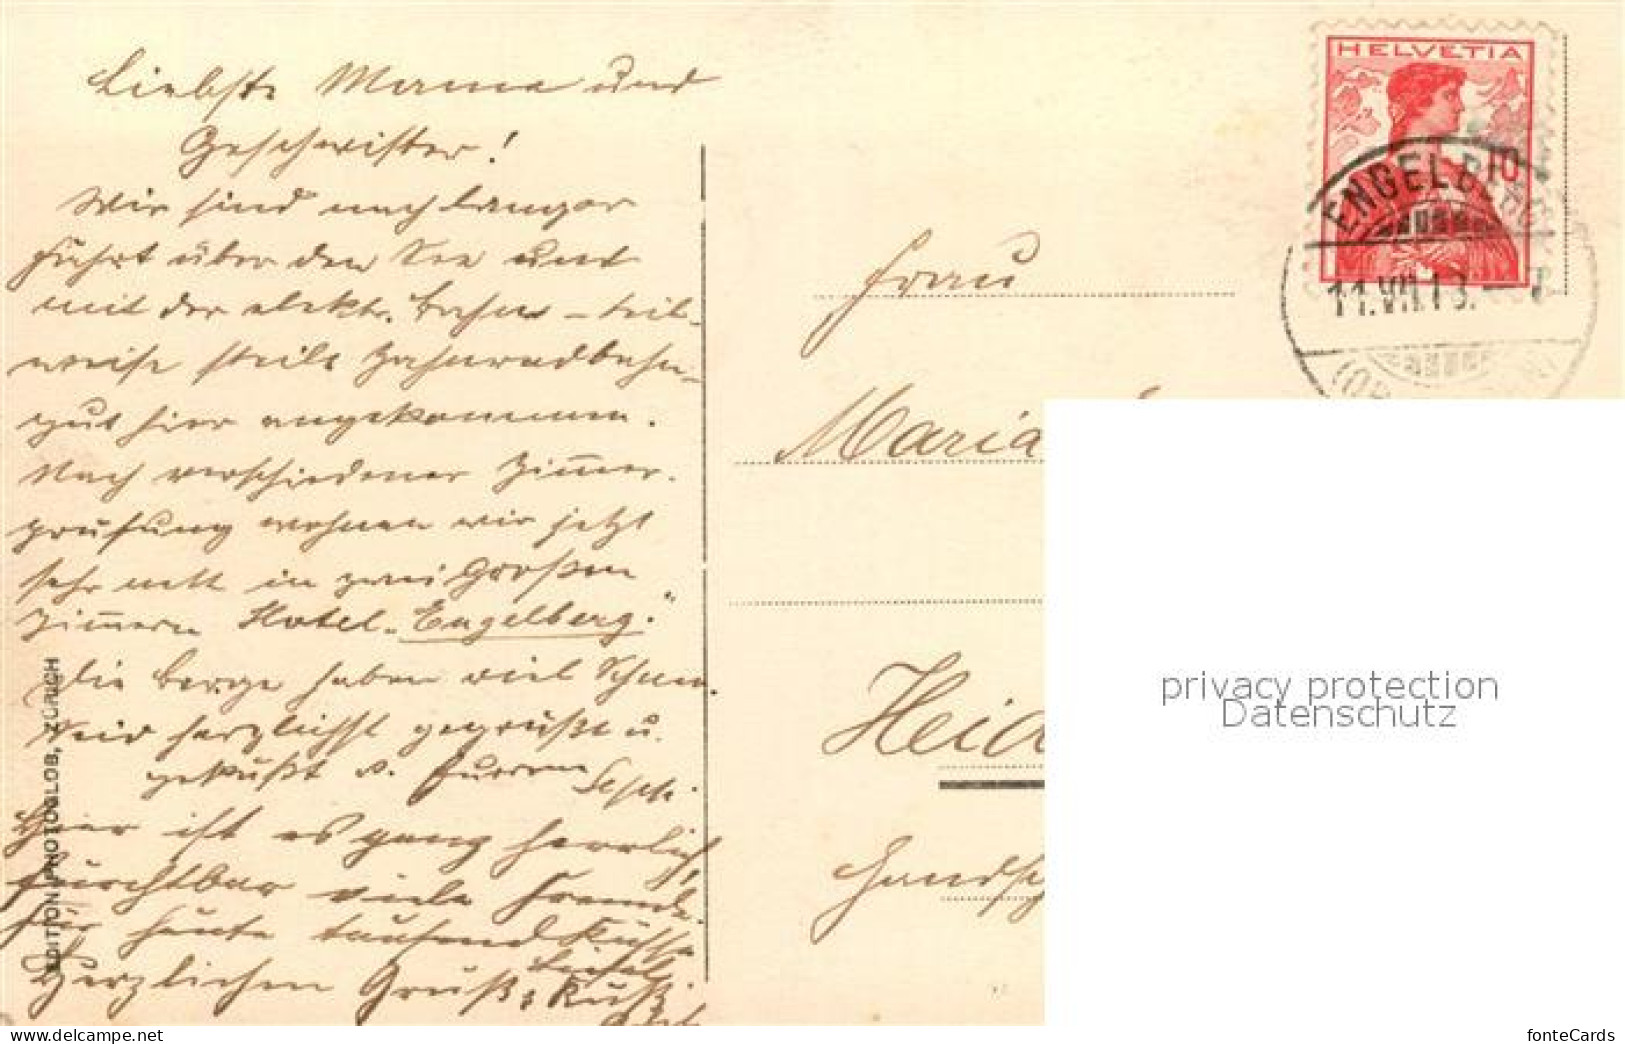 Liebste Mama und
Geschwister!
Wir sind nach langer
Fahrt über den See und
mit der elektr. Bahn – teil-
weise steile Zahnradbahn –
gut hier angekommen.
Nach verschiedener Zimmer-
prüfung wohnen wir jetzt
sehr nett in zwei großen
Zimmern Hotel „Engelberg."
Die Berge haben viel Schnee.
Seid herzlichst gegrüßt u.
geküßt v. Eurem
Hier ist es ganz herrlich,
furchtbar viele Fremde.
Für heute tausend Küsse
Liesel
Herzlichen Gruß & Kuß
EDITION PHOTOGLOB, ZÜRICH
HELVETIA
10
ENGELBERG
11.VII.13.
Frau
Maria
Heid
Handsch
privacy protection
Datenschutz
fonteCards | www.fontecards.de